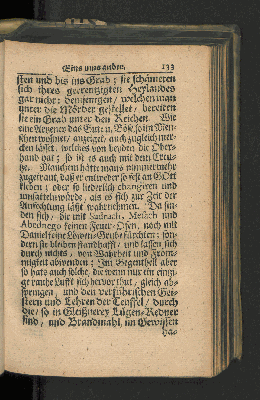 Eins ums ander. 133
sten und bis ins Grab; sie schämeten
sich ihres gecreutzigten Heylandes
gar nicht; demjenigen, welchen man
unter die Mörder gestellet / bereiten
sie ein Grab unter den Reichen. Wie
eine Artzeney das Gute u. Böse, so im Men-
schen wohnet / anzeiget / auch zugleich mer-
cken lässet, welches von beyden die Ober-
hand hat; so ist es auch mit dem Creu-
tze. Manchem hätte mans nimmermehr
zugetraut, daß er entweder so fest an GOtt
kleben; oder so liederlich changiren und
umsatteln würde, als es sich zur Zeit der
Anfechtung lässt wahrnehmen. Da fin-
den sich / die mit Sadrach, Mesach und
Abednego keinen Feuer-Ofen / noch mit
Daniel eine Löwen-Grube fürchten; son-
dern sie bleiben standhafft / und lassen sich
durch nichts / von Wahrheit und Fröm-
migkeit abwenden: Im Gegentheil aber
so hats auch solche, die wenn nur ein eintzi-
ge rauhe Lufft sich hervor thut / gleich ab-
springen / und den verführischen Gei-
stern und Lehren der Teuffel / durch
die / so in Gleißnerey Lügen-Redner
sind / und Brandmahl im Gewissen
ha-